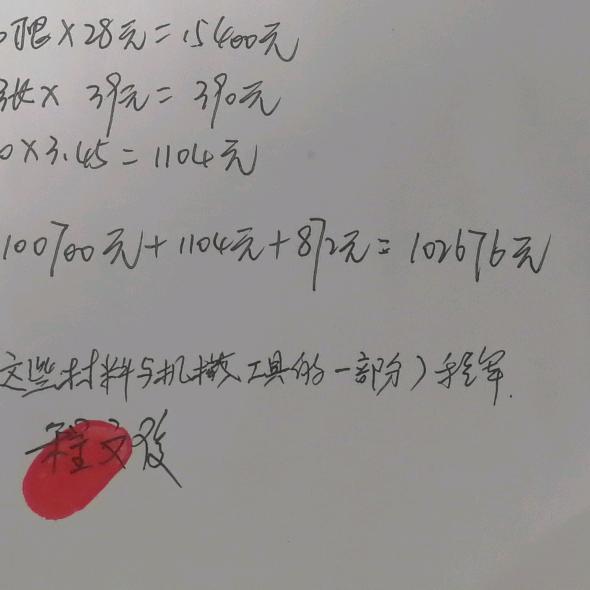 根×28元=15400元
张×39元=390元
0×3.45=1104元
100700元+1104元+872元=102676元
这些材料与机械工具的一部分)程军.
程文俊